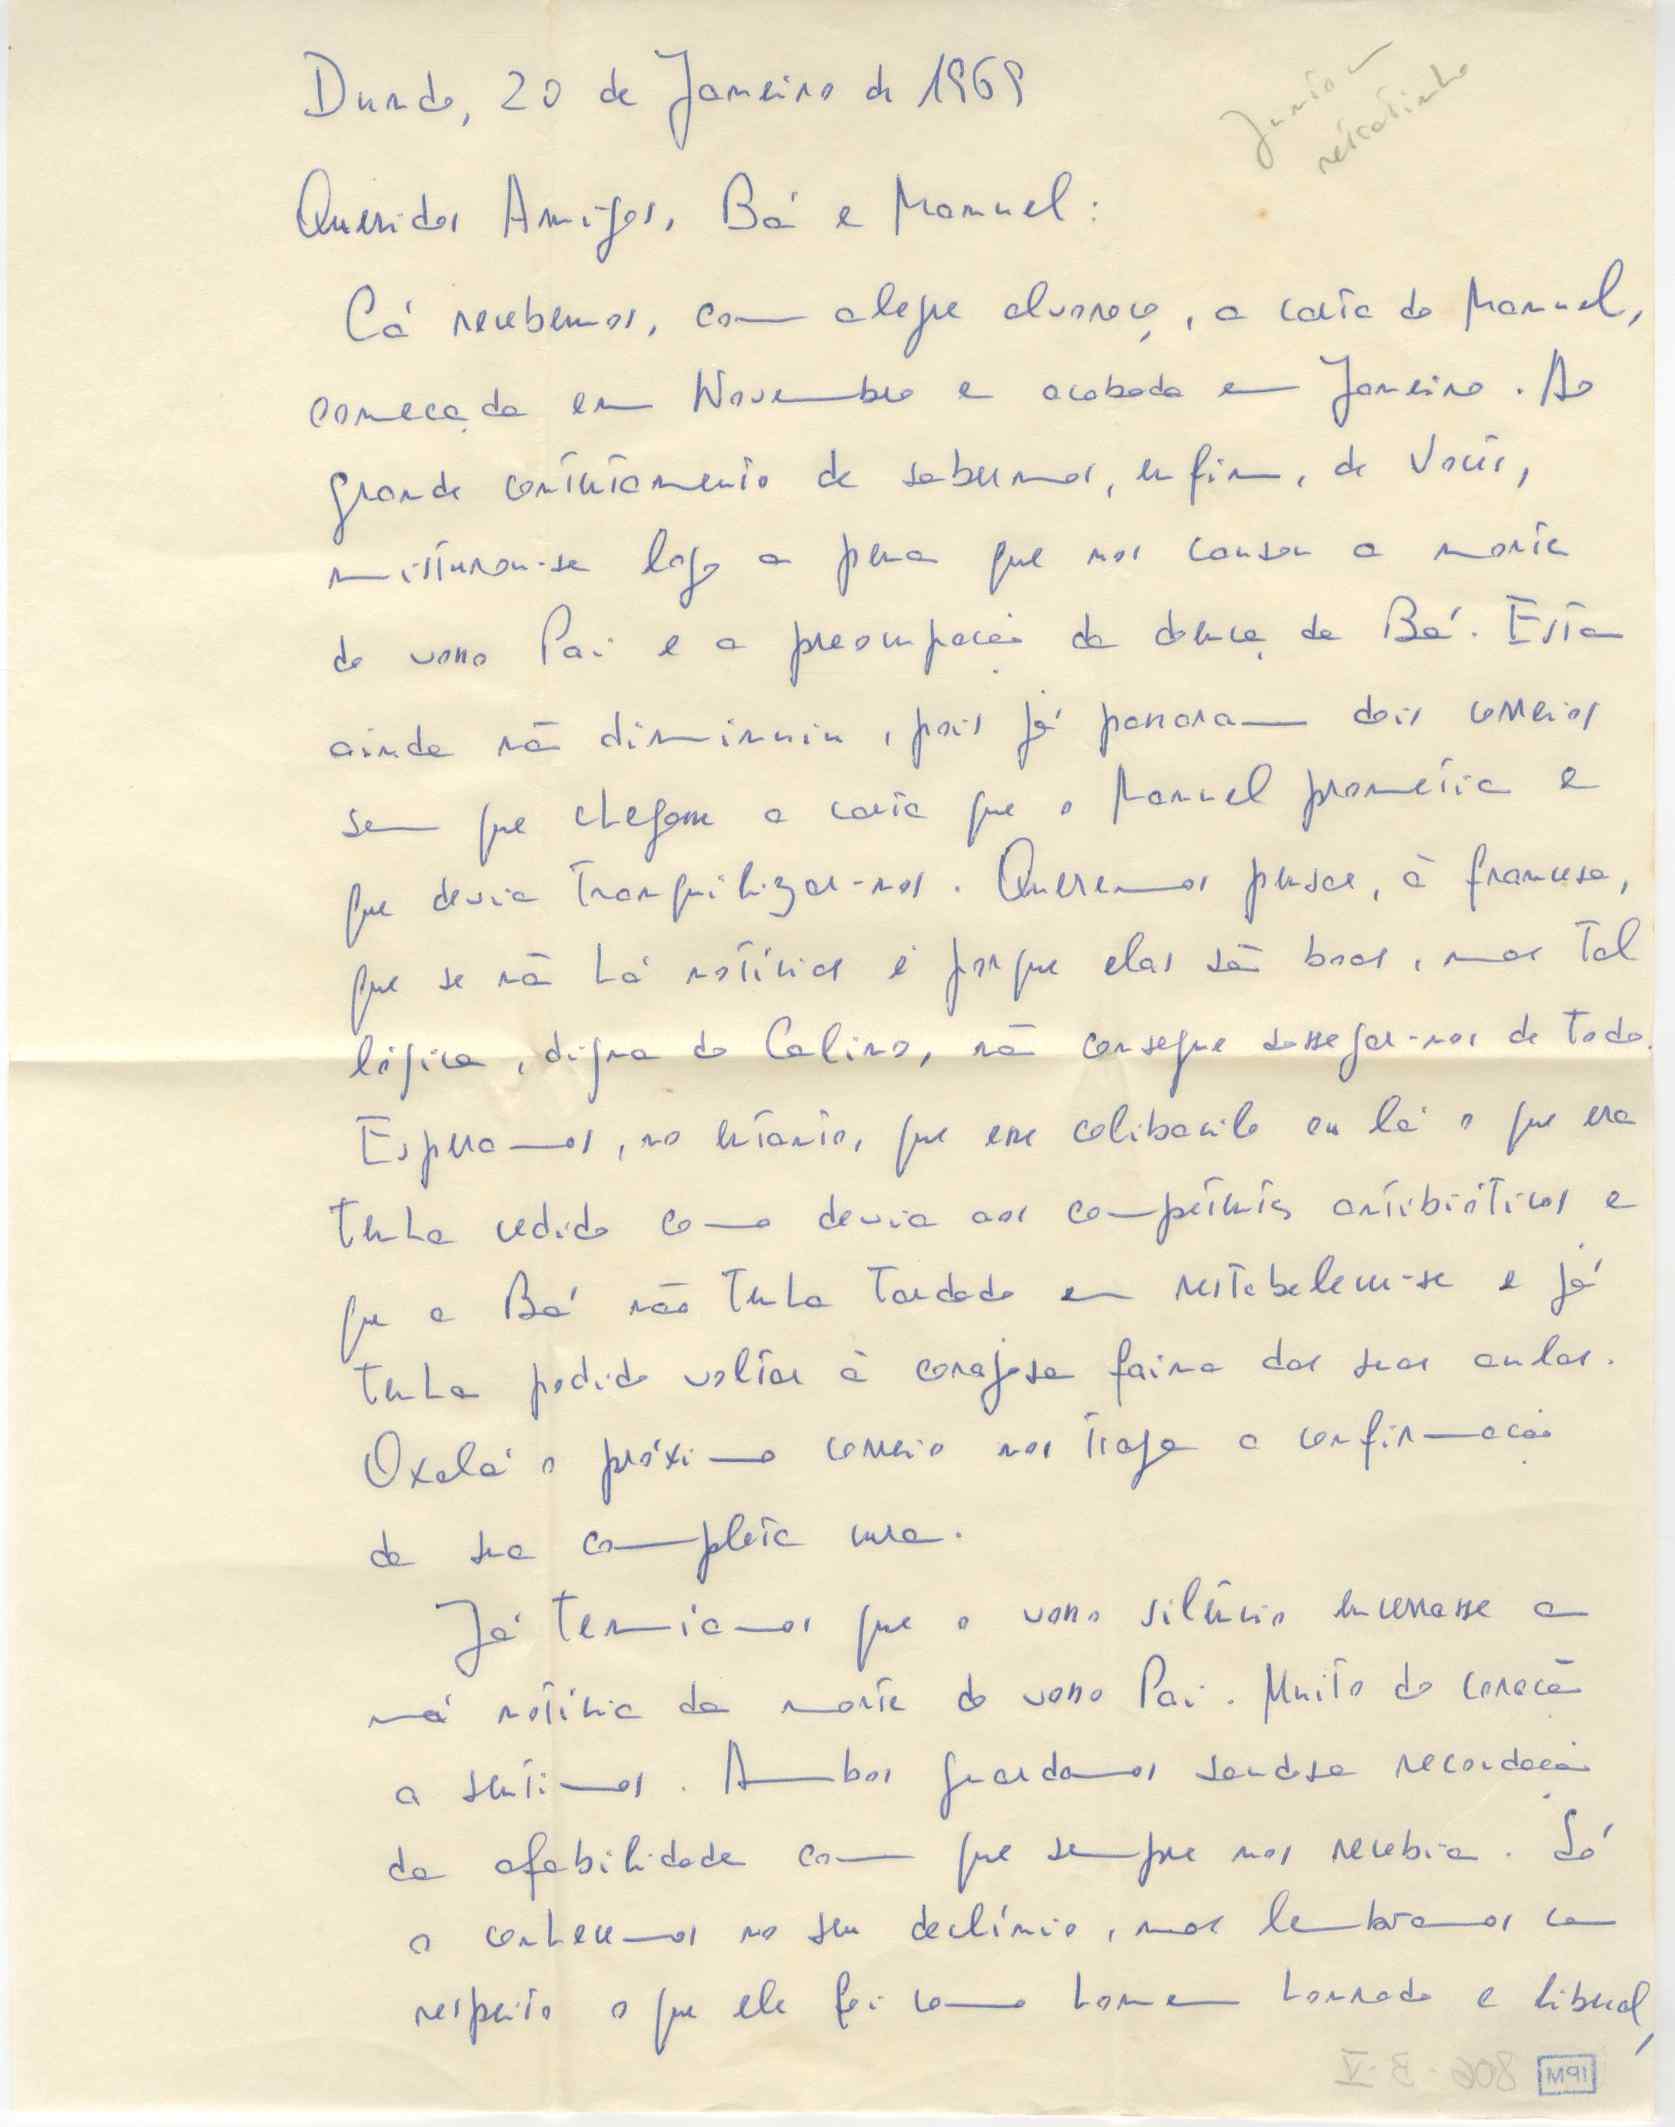 Dundo, 20 de Janeiro de 1969
Junto um
retratinho
Queridos Amigos, Bá e Manuel:
Cá recebemos, com alegre alvoroço, a carta do Manuel,
começada em Novembro e acabada em Janeiro. Ao
grande contentamento de sabermos, enfim, de Vocês,
misturou-se logo a pena que nos causou a morte
do vosso Pai e a preocupação da doença da Bá. Esta
ainda não diminuiu, pois já passaram dois correios
sem que chegasse a carta que o Manuel prometia e
que devia tranquilizar-nos. Queremos pensar, à francesa,
que se não há notícias é porque elas são boas, mas tal
lógica, digna do Calino, não consegue sossegar-nos de todo.
Esperamos, no entanto, que esse colibacilo ou lá o que era
tenha cedido como devia aos competentes antibióticos e
que a Bá não tenha tardado em restabelecer-se e já
tenha podido voltar à corajosa faina das suas aulas.
Oxalá o próximo correio nos traga a confirmação
da sua completa cura.
Já temíamos que o vosso silêncio encerrasse a
má notícia da morte do vosso Pai. Muito do coração
a sentimos. Ambos guardamos saudosa recordação
da afabilidade com que sempre nos recebia. Só
o conhecemos no seu declínio, mas lembramos com
respeito o que ele foi como homem honrado e liberal,
806-B-V
IPM